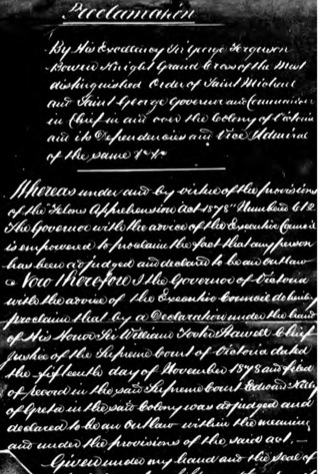 Proclamation
By His Excellency Sir George Ferguson
Bowen Knight Grand Cross of the Most
distinguished Order of Saint Michael
and Saint George Governor and Commander
in Chief in and over the Colony of Victoria
and its Dependencies and Vice Admiral
of the same &c &c
Whereas under and by virtue of the provisions
of the "Felons Apprehension Act 1878" Number 612
The Governor with the advice of the Executive Council
is empowered to proclaim the fact that any person
has been adjudged and declared to be an outlaw
Now therefore I the Governor of Victoria
with the advice of the Executive Council do hereby
proclaim that by a Declaration under the hand
of His Honor Sir William Foster Stawell Chief
Justice of the Supreme Court of Victoria dated
the fifteenth day of November 1878 and filed
of record in the said Supreme Court Edward Kelly
of Greta in the said Colony was adjudged and
declared to be an outlaw within the meaning
and under the provisions of the said Act. —
Given under my hand and the Seal of